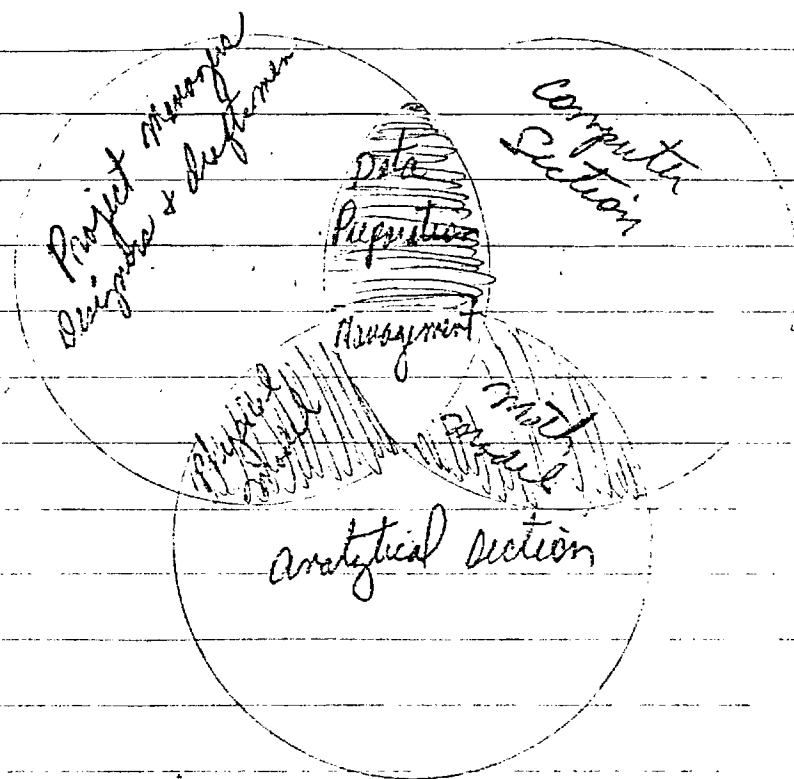 Project Managers
Designers & draftsmen
Computer
Section
Data
Preparation
Management
Physical
Model
Math
model
analytical section